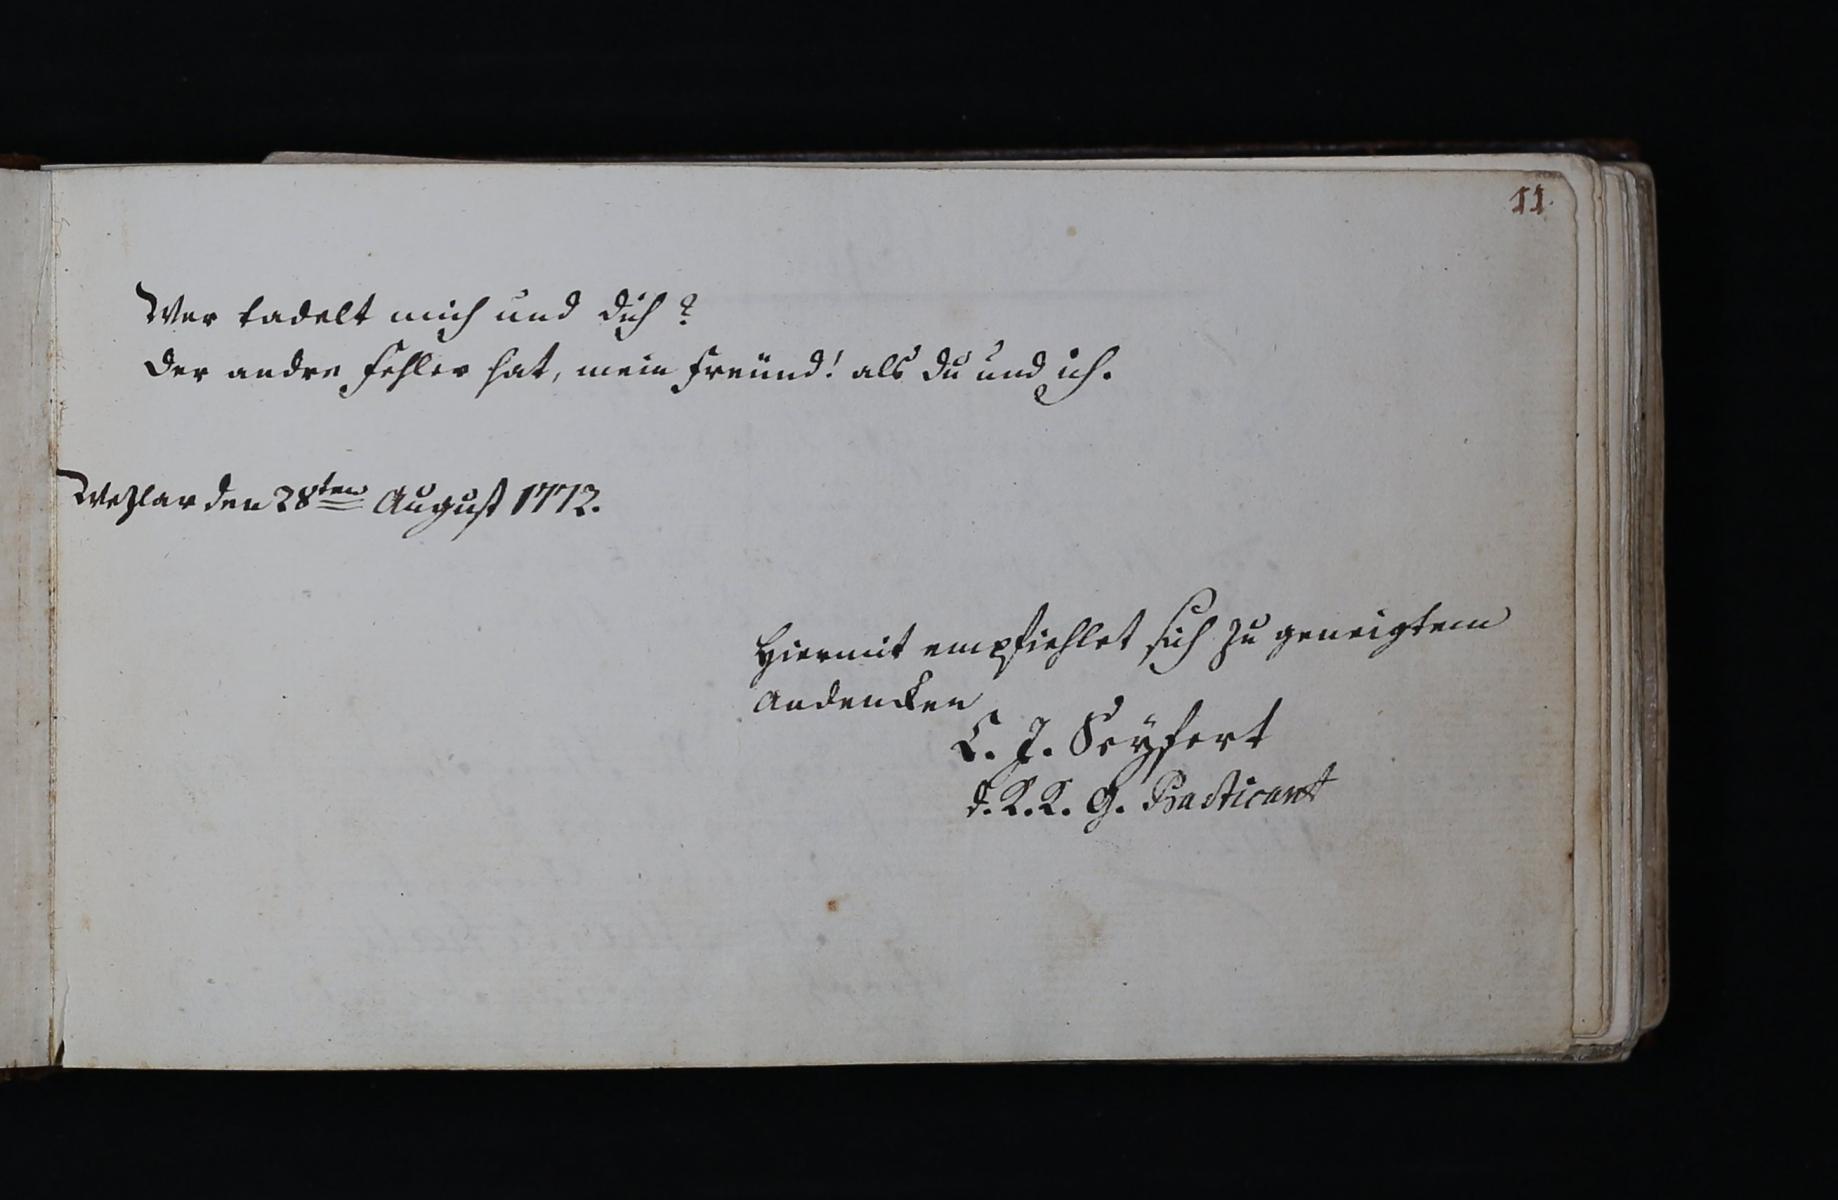 11.
Wer tadelt mich und dich?
Der andre Fehler hat, mein Freünd! als du und ich.
Wezlar den 28ten August 1772.
Hiermit empfiehlet sich zu geneigtem
Andencken
C. J. Seÿfert
d. K. K. G. Practicant